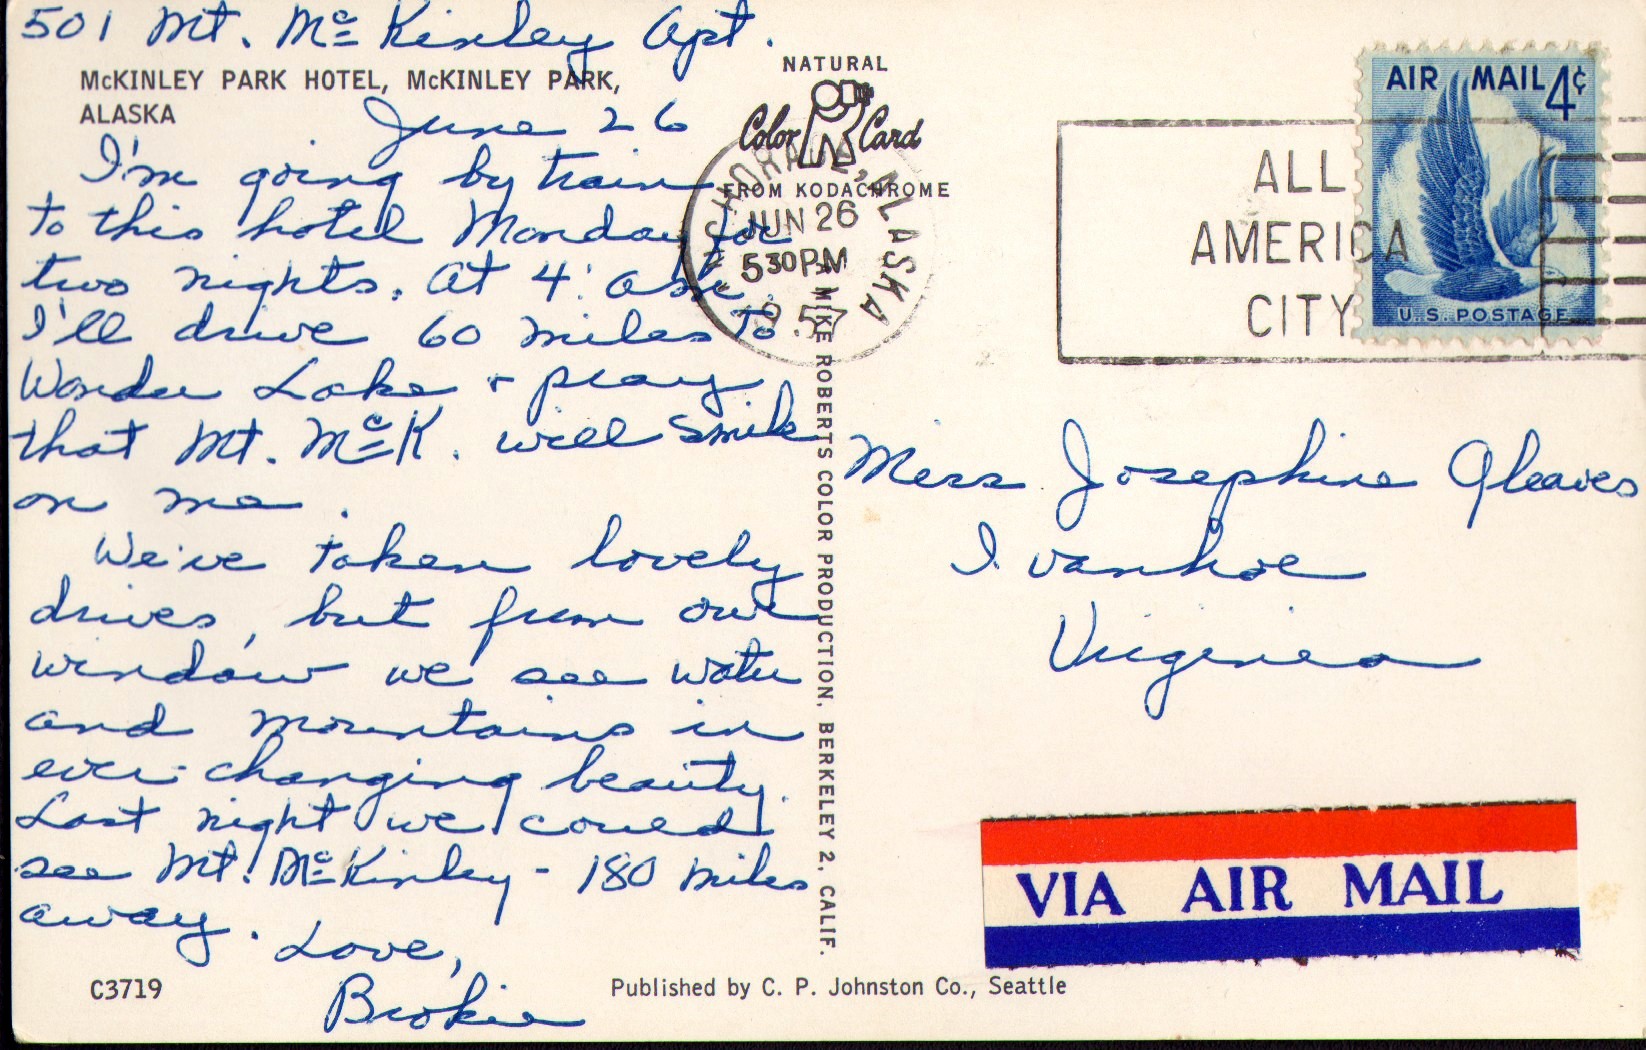 501 Mt. McKinley Apt.
McKINLEY PARK HOTEL, McKINLEY PARK,
ALASKA
June 26
I'm going by train
to this hotel Monday for
two nights. At 4:
I'll drive 60 miles to
Wonder Lake + pray
that Mt. McK. will smile
on me.
We've taken lovely
drives, but from our
window we see water
and mountains in
ever-changing beauty.
Last night we could
see Mt. McKinley - 180 miles
away.
Love,
Brokie
C3719
NATURAL
Color Card
FROM KODACHROME
ANCHORAGE, ALASKA
JUN 26
530PM
1957
MIKE ROBERTS COLOR PRODUCTION, BERKELEY 2, CALIF.
Published by C. P. Johnston Co., Seattle
ALL
AMERICA
CITY
AIR MAIL 4¢
U.S. POSTAGE
Miss Josephine Gleaves
Ivanhoe
Virginia
VIA AIR MAIL